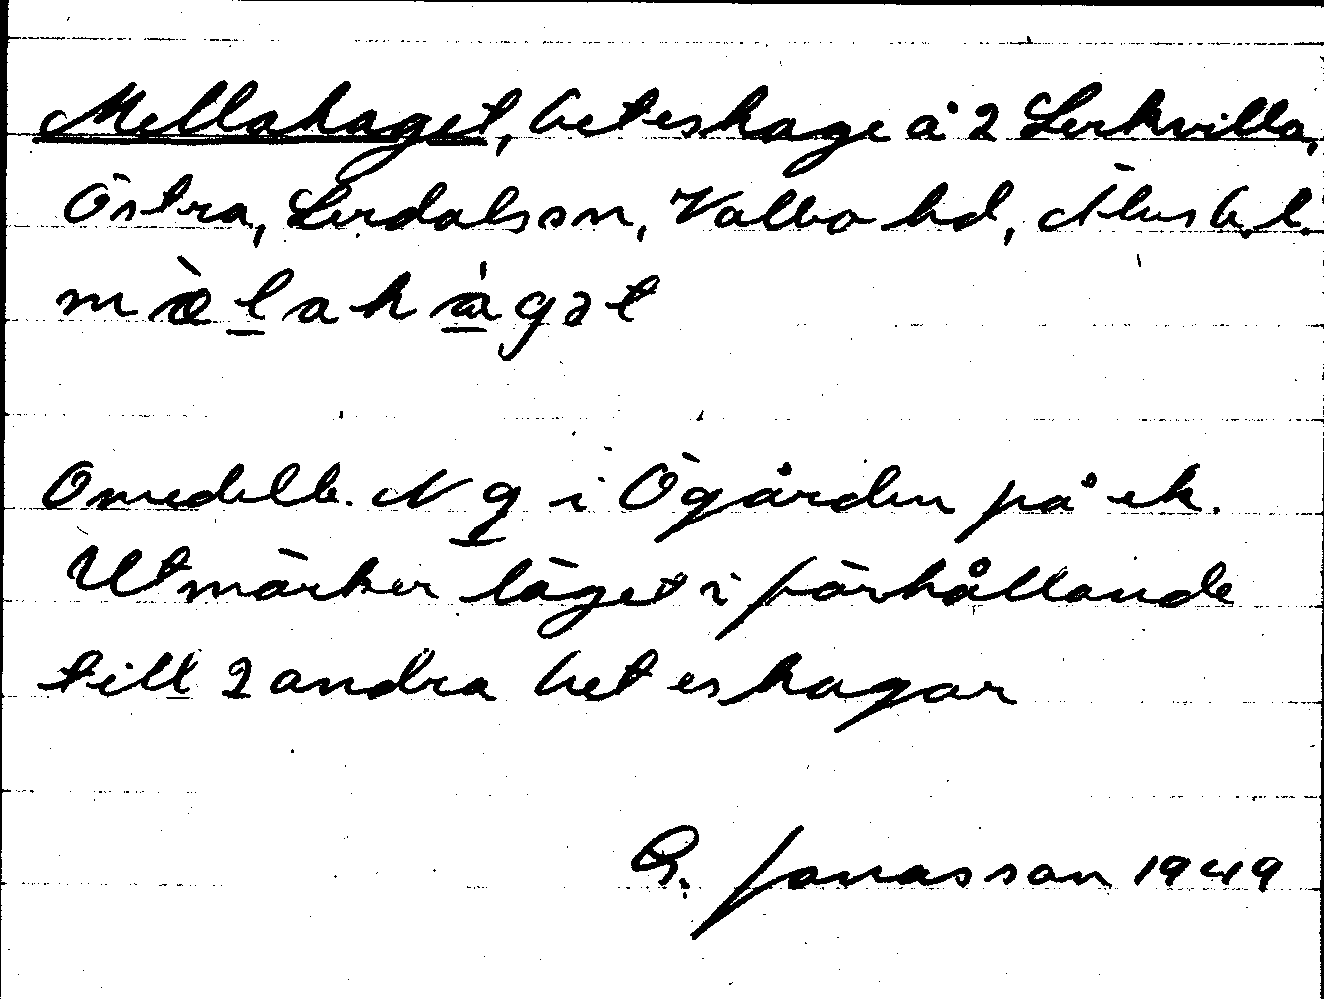 Mellahaget, beteshage å 2 Lerkvilla,
Östra, Lerdals sn, Valbo hd, Älvsb. l.
mæ̀lahàgət
Omedelb. N g i Ögården på ek.
Utmärker läget i förhållande
till 2 andra beteshagar
G. Jonasson 1949